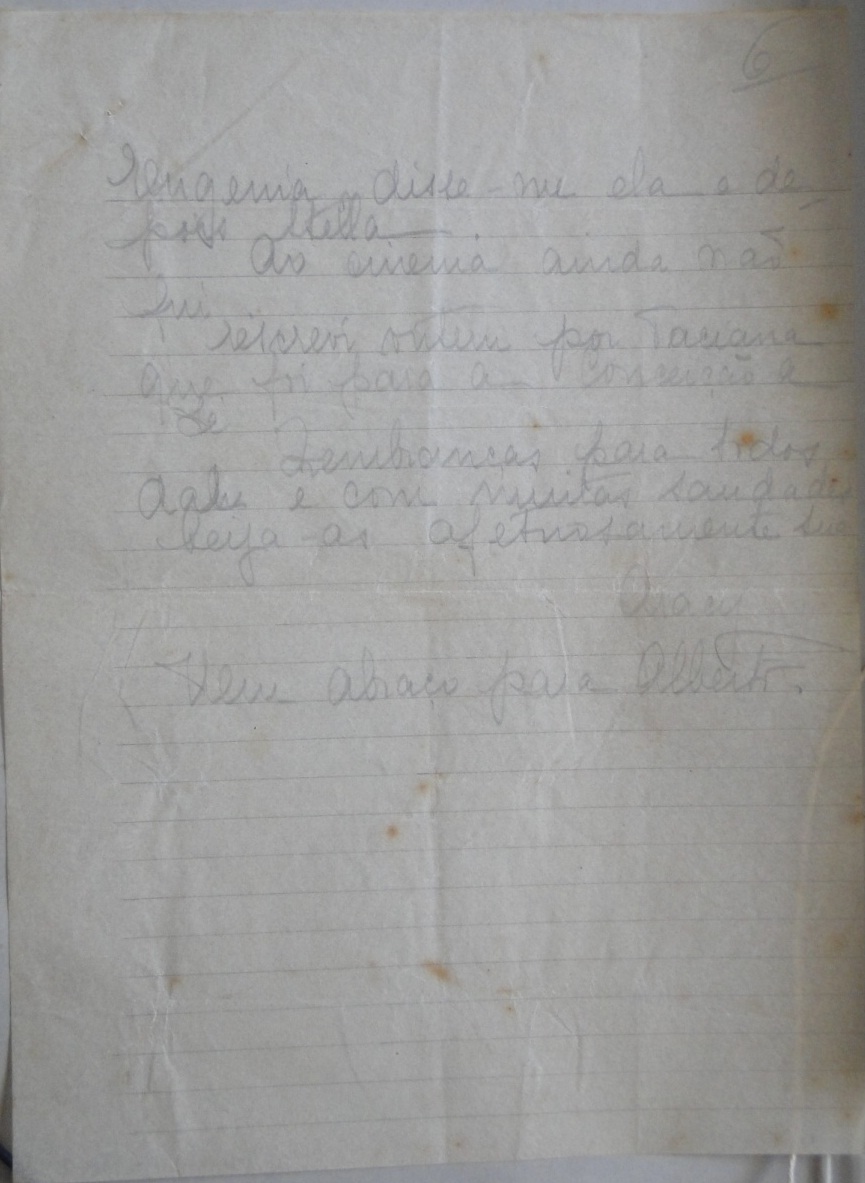 6
Eugenia, disse-me ela e de-
pois Stella.
Ao cinema ainda não
fui.
Escrevi ontem por Taciana
que foi para a Conceição e
Zé
Lembranças para todos
daí e com muitas saudades
beija-as afetuosamente sua

Um abraço para Alberto.